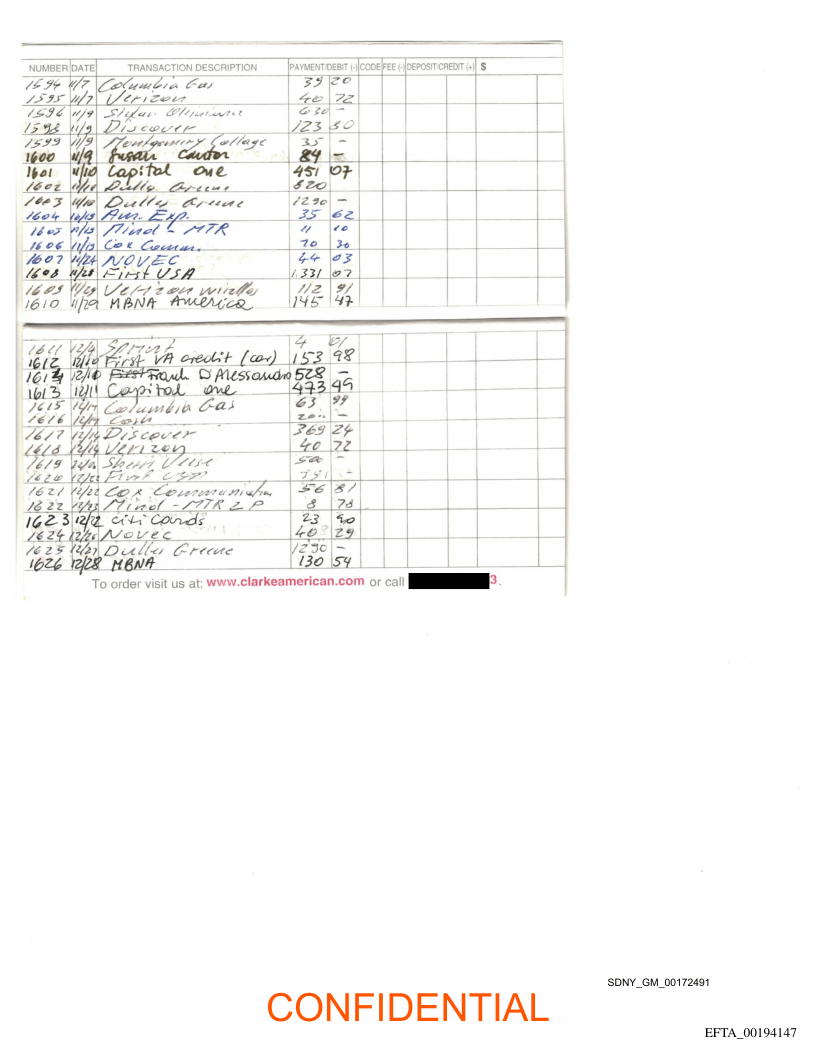 NUMBER DATE TRANSACTION DESCRIPTION PAYMENT/DEBIT (-) CODE FEE (-) DEPOSIT/CREDIT (+) $
1594 11/7 Columbia Gas 39 20
1595 11/7 Verizon 40 72
1596 11/9 630 -
1598 11/9 Discover 123 30
1599 11/9 Montgomery Collage 35 -
1600 11/9 Susan Cantor 84 -
1601 11/10 Capital One 451 07
1602 Dulles Greene 820
1603 11/10 Dulles Greene 1290 -
1604 Am. Exp. 35 62
1605 Mind - MTR 11 10
1606 11/13 Cox Comm. 70 30
1607 11/24 NOVEC 44 03
1608 11/28 First USA 1.331 07
1609 11/29 Verizon 112 91
1610 11/29 MBNA America 145 47
1611 12/4 Sprint 4 01
1612 12/10 First VA credit (car) 153 98
1614 12/10 First Frank D'Alessandro 528 -
1613 12/11 Capital one 473 49
1615 Columbia Gas 63 99
1616 Cash -
1617 12/14 Discover 369 24
1618 12/14 Verizon 40 72
1619 50 -
1620 12/22 First
1621 12/22 Cox Communication 56 81
1622 12/23 Mind - MTR 2 P 8 78
1623 12/2 citi Cards 23 90
1624 12/26 Novec 40 29
1625 12/27 Dulles Greene 1290 -
1626 12/28 MBNA 130 54
To order visit us at: www.clarkeamerican.com or call 3.
SDNY_GM_00172491
CONFIDENTIAL
EFTA_00194147